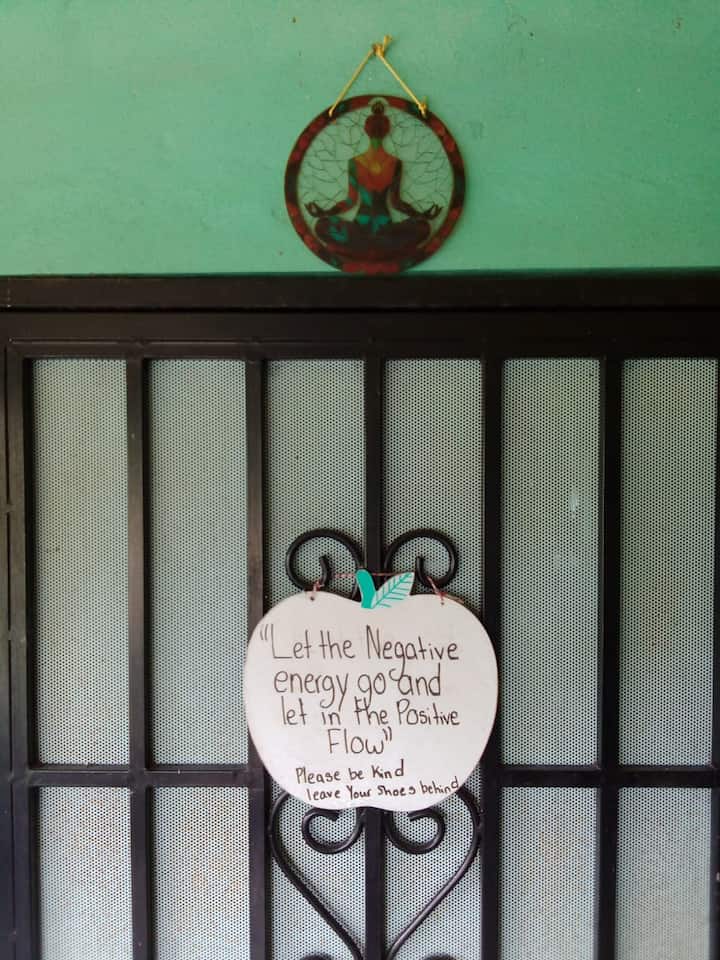 "Let the Negative
energy go and
let in the Positive
Flow"
Please be Kind
leave Your shoes behind